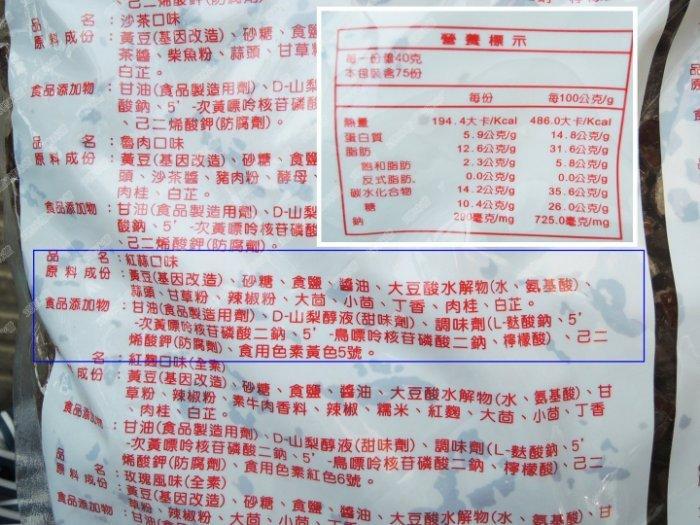 己二烯酸鉀(防腐劑)。
品名：沙茶口味
原料成份：黃豆(基因改造)、砂糖、食鹽
茶醬、柴魚粉、蒜頭、甘草
白芷。
食品添加物：甘油(食品製造用劑)、D-山梨
酸鈉、5'-次黃嘌呤核苷磷酸
己二烯酸鉀(防腐劑)。
品名：魯肉口味
原料成份：黃豆(基因改造)、砂糖、食
頭、沙茶醬、豬肉粉、酵母
肉桂、白芷。
食品添加物：甘油(食品製造用劑)、D-山梨
酸鈉、5'-次黃嘌呤核苷磷酸
己二烯酸鉀(防腐劑)。
營養標示
每一份量40克
本包裝含75份
每份 每100公克/g
熱量 194.4大卡/Kcal 486.0大卡/Kcal
蛋白質 5.9公克/g 14.8公克/g
脂肪 12.6公克/g 31.6公克/g
飽和脂肪 2.3公克/g 5.8公克/g
反式脂肪 0.0公克/g 0.0公克/g
碳水化合物 14.2公克/g 35.6公克/g
糖 10.4公克/g 26.0公克/g
鈉 290毫克/mg 725.0毫克/mg
品名：紅蒜口味
原料成份：黃豆(基因改造)、砂糖、食鹽、醬油、大豆酸水解物(水、氨基酸)、
蒜頭、甘草粉、辣椒粉、大茴、小茴、丁香、肉桂、白芷。
食品添加物：甘油(食品製造用劑)、D-山梨醇液(甜味劑)、調味劑(L-麩酸鈉、5'
-次黃嘌呤核苷磷酸二鈉、5'-鳥嘌呤核苷磷酸二鈉、檸檬酸)、己二
烯酸鉀(防腐劑)、食用色素黃色5號。
名：紅麴口味(全素)
成份：黃豆(基因改造)、砂糖、食鹽、醬油、大豆酸水解物(水、氨基酸)、甘
草粉、辣椒粉、素牛肉香料、辣椒、糯米、紅麴、大茴、小茴、丁香
、肉桂、白芷。
食品添加物：甘油(食品製造用劑)、D-山梨醇液(甜味劑)、調味劑(L-麩酸鈉、5'
-次黃嘌呤核苷磷酸二鈉、5'-鳥嘌呤核苷磷酸二鈉、檸檬酸)、己二
烯酸鉀(防腐劑)、食用色素紅色6號。
品名：玫瑰風味(全素)
原料成份：黃豆(基因改造)、砂糖、食鹽、醬油、大豆酸水解物(水、氨基酸)、甘
草粉、辣椒粉、大茴、小茴、丁香、肉桂
食品添加物：甘油(食品製造用劑)、D-山梨醇液(甜味劑)